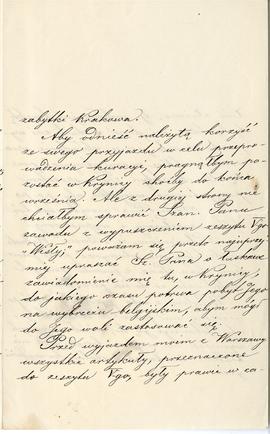 zabytki Krakowa.
Aby odnieść należytą korzyść
ze swego przyjazdu w celu przepro-
wadzenia kuracyi, pragnąłbym po-
zostać w Krynicy choćby do końca
września. Ale z drugiej strony nie
chciałbym sprawić Szan. Panu
zawodu z wypuszczeniem zeszytu Vgo
"Wisły", poważam się przeto najuprzej-
miej upraszać Sz. Pana o łaskawe
zawiadomienie mię tu, w Krynicy,
do jakiego czasu potrwa pobyt Jego
na wybrzeżu belgijskiem, abym mógł
do Jego woli zastosować się.
Przed wyjazdem mym z Warszawy
wszystkie artykuły, przeznaczone
do zeszytu Vgo, były prawie w ca-